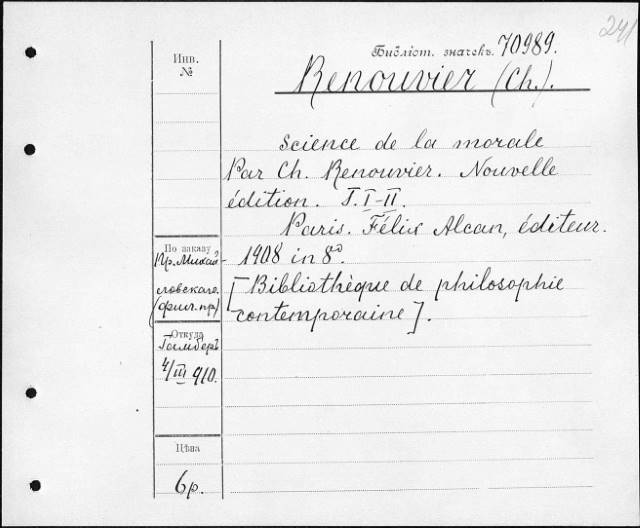 241
Библіот. значекъ. 70989.
Инв.
№
Renouvier (Ch.).
Science de la morale
Par Ch. Renouvier. Nouvelle
édition. T. I-II.
Paris. Félix Alcan, éditeur.
1908 in 8º.
[Bibliothèque de philosophie
contemporaine].
По заказу
Пр. Михай-
ловскаго.
(фил. пр.)
Откуда
Гамберъ
4/III 910.
Цѣна
6 р.